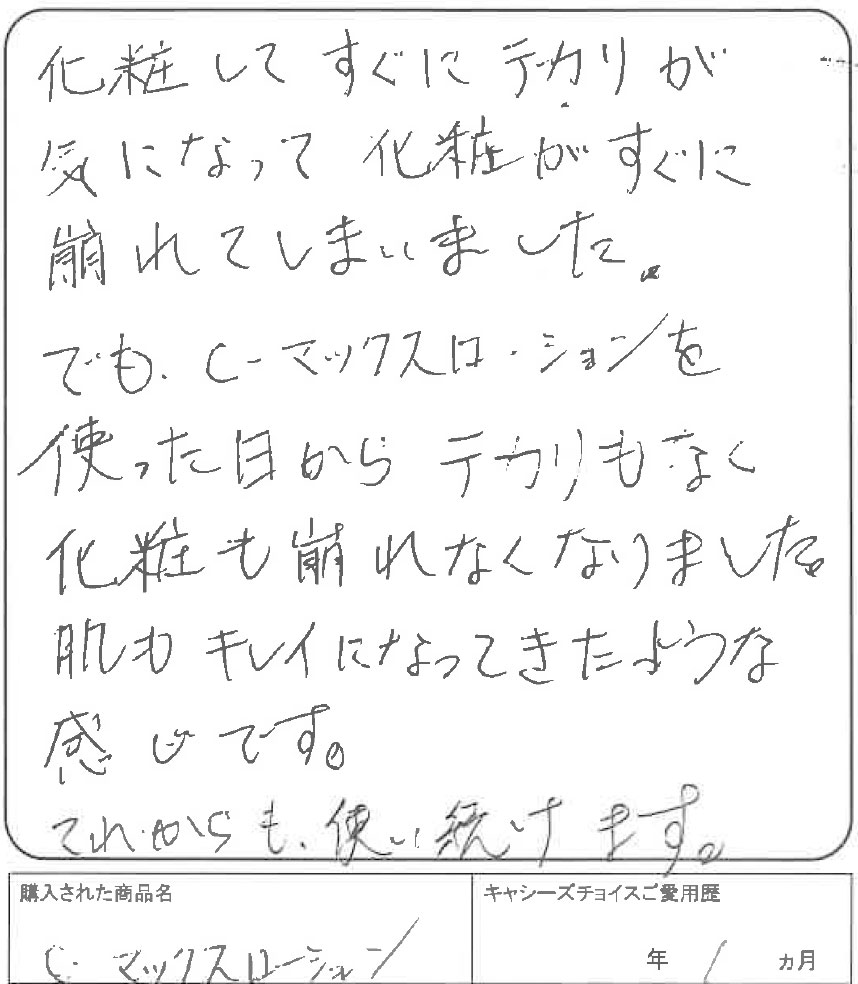 化粧して すぐに テカリが
気になって 化粧がすぐに
崩れてしまいました。
でも、C-マックスローションを
使った日から テカリもなく
化粧も崩れなくなりました。
肌も キレイになってきたような
感じです。
これからも、使い続けます。
購入された商品名
キャシーズチョイスご愛用歴
C-マックスローション
年 1 ヵ月